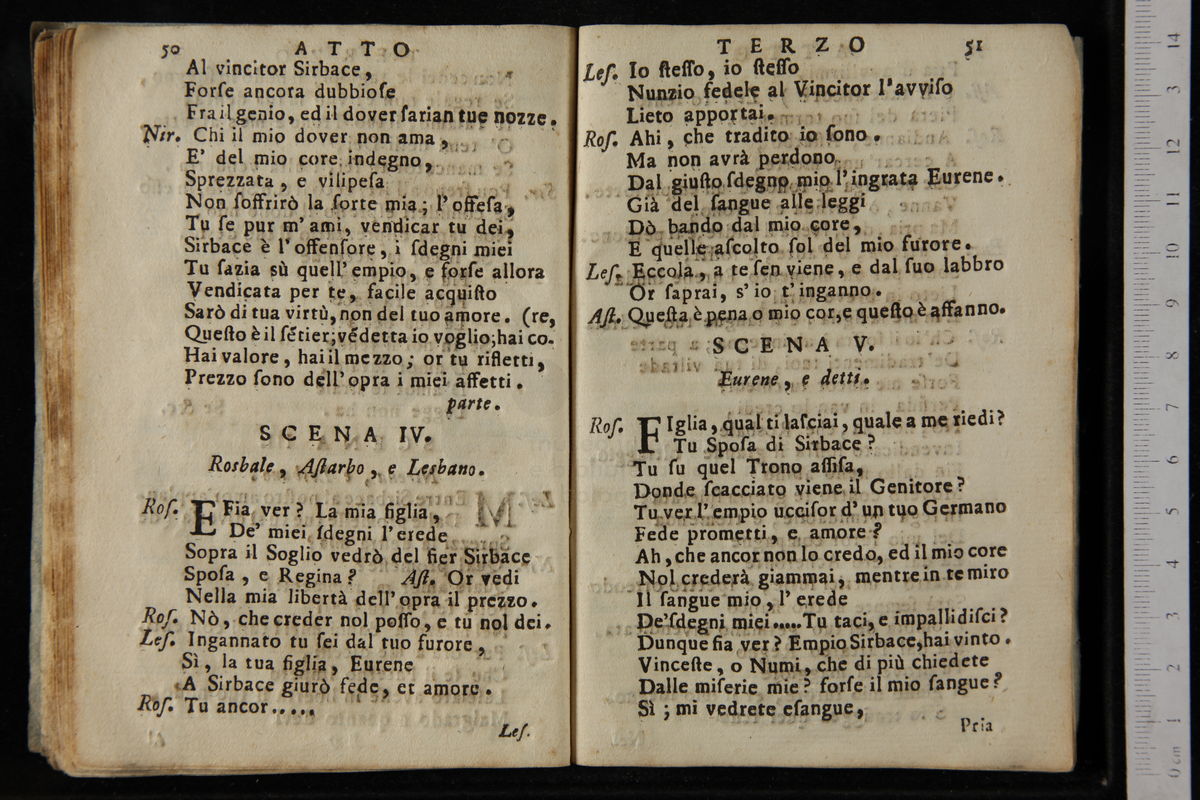 50 ATTO
Al vincitor Sirbace,
Forſe ancora dubbioſe
Fra il genio, ed il dover ſarian tue nozze.
Nir. Chi il mio dover non ama,
E' del mio core indegno,
Sprezzata, e vilipeſa
Non ſoffrirò la ſorte mia; l'offeſa,
Tu ſe pur m'ami, vendicar tu dei,
Sirbace è l'offenſore, i ſdegni miei
Tu ſazia sù quell'empio, e forſe allora
Vendicata per te, facile acquiſto
Sarò di tua virtù, non del tuo amore. (re,
Queſto è il ſétier; védetta io voglio; hai co-
Hai valore, hai il mezzo; or tu rifletti,
Prezzo ſono dell'opra i miei affetti.
parte.
SCENA IV.
Rosbale, Aſtarbo, e Lesbano.
Roſ. E Fia ver? La mia figlia,
De' miei ſdegni l'erede
Sopra il Soglio vedrò del fier Sirbace
Spoſa, e Regina? Aſt. Or vedi
Nella mia libertà dell'opra il prezzo.
Roſ. Nò, che creder nol poſſo, e tu nol dei.
Leſ. Ingannato tu ſei dal tuo furore,
Sì, la tua figlia, Eurene
A Sirbace giurò fede, et amore.
Roſ. Tu ancor.....
Leſ.
TERZO 51
Leſ. Io ſteſſo, io ſteſſo
Nunzio fedele al Vincitor l'avviſo
Lieto apportai.
Roſ. Ahi, che tradito io ſono.
Ma non avrà perdono
Dal giuſto ſdegno mio l'ingrata Eurene.
Già del ſangue alle leggi
Dò bando dal mio core,
E quelle aſcolto ſol del mio furore.
Leſ. Eccola, a te ſen viene, e dal ſuo labbro
Or ſaprai, s'io t'inganno.
Aſt. Queſta è pena o mio cor, e queſto è affanno.
SCENA V.
Eurene, e detti.
Roſ. FIglia, qual ti laſciai, quale a me riedi?
Tu Spoſa di Sirbace?
Tu ſu quel Trono aſſiſa,
Donde ſcacciato viene il Genitore?
Tu ver l'empio ucciſor d'un tuo Germano
Fede prometti, e amore?
Ah, che ancor non lo credo, ed il mio core
Nol crederà giammai, mentre in te miro
Il ſangue mio, l'erede
De'ſdegni miei.....Tu taci, e impallidiſci?
Dunque fia ver? Empio Sirbace, hai vinto.
Vinceſte, o Numi, che di più chiedete
Dalle miſerie mie? forſe il mio ſangue?
Sì; mi vedrete eſangue,
Pria
14
13
12
11
10
9
8
7
6
5
4
3
2
1
0 cm